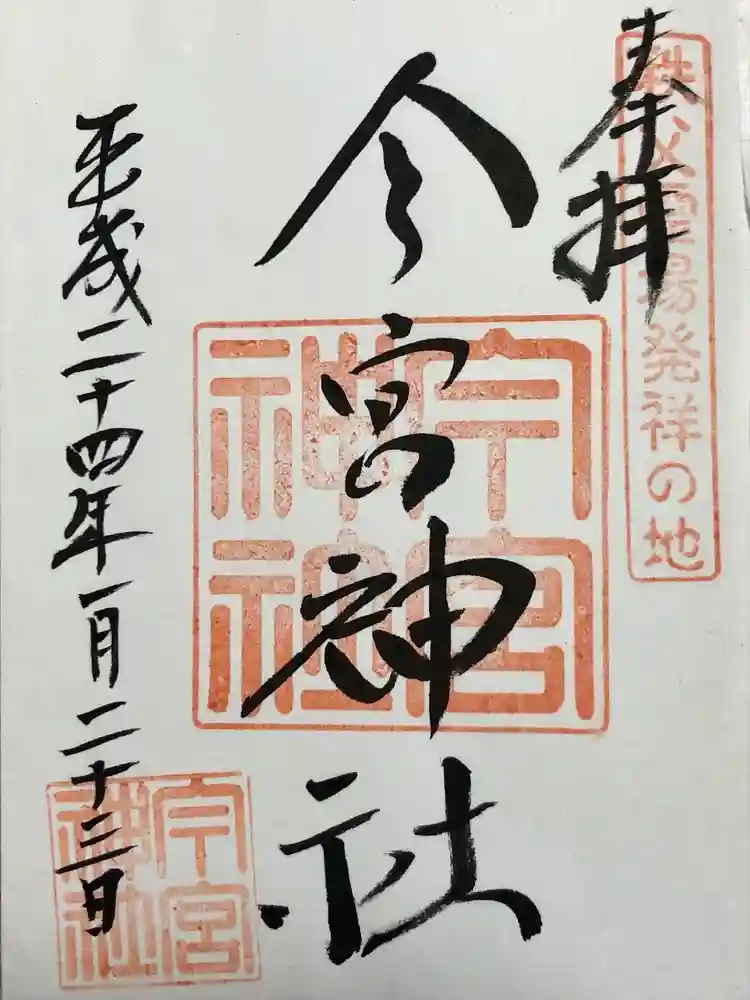 秩父霊場発祥の地
奉拝
今宮神社
今宮神社
平成二十四年一月二十三日
今宮神社